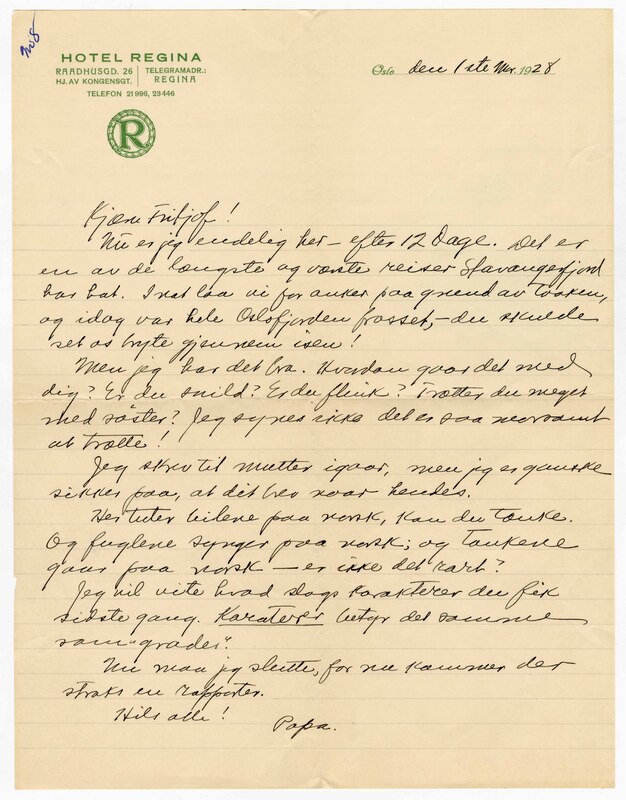 No 8
HOTEL REGINA
RAADHUSGD. 26 | TELEGRAMADR.:
HJ. AV KONGENSGT. | REGINA
TELEFON 21996, 23446
R
Oslo den 1ste Mr. 1928
Kjære Fritjof!
Nu er jeg endelig her – efter 12 Dage. Det er
en av de længste og værste reiser Stavangerfjord
har hat. I nat laa vi for anker paa grund av taaken,
og idag var hele Oslofjorden frosset, – du skulde
set os bryte gjennem isen!
Men jeg har det bra. Hvordan gaar det med
dig? Er du snild? Er du flink? Trætter du meget
med söster? Jeg synes ikke det er saa morsomt
at trætte!
Jeg skrev til mutter igaar, men jeg er ganske
sikker paa, at dit brev naar hendes.
Her tuter bilene paa norsk, kan du tænke.
Og fuglene synger paa norsk; og tankene
gaar paa norsk – er ikke det rart?
Jeg vil vite hvad slags karakterer du fik
sidste gang. Karaterer betyr det samme
som "grades".
Nu maa jeg slutte, for nu kommer der
straks en rapporter.
Hils alle!
Papa.